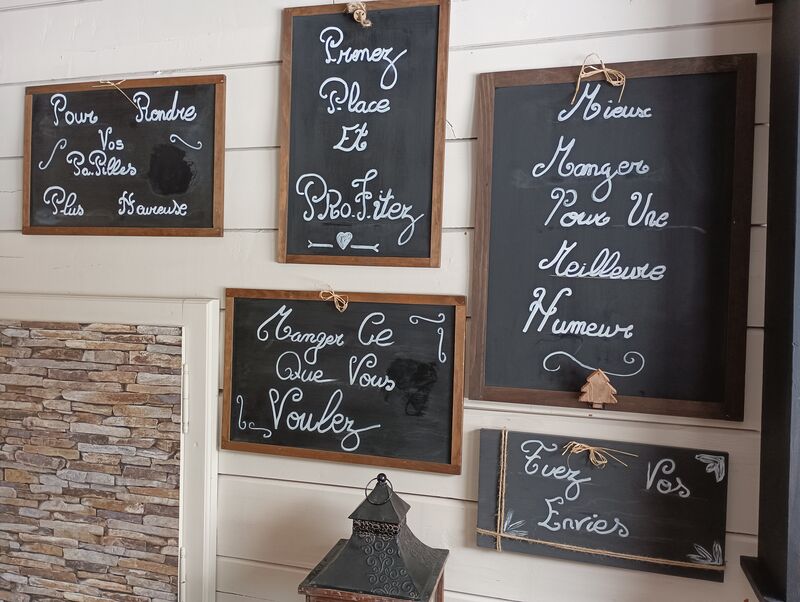 Pour Rendre
Vos
Pa.Pilles
Plus Heureuse
Prenez
Place
Et
PRo.Fitez
Mieux
Manger
Pour Une
Meilleure
Humeur
Manger Ce
Que Vous
Voulez
Tuez Vos
Envies